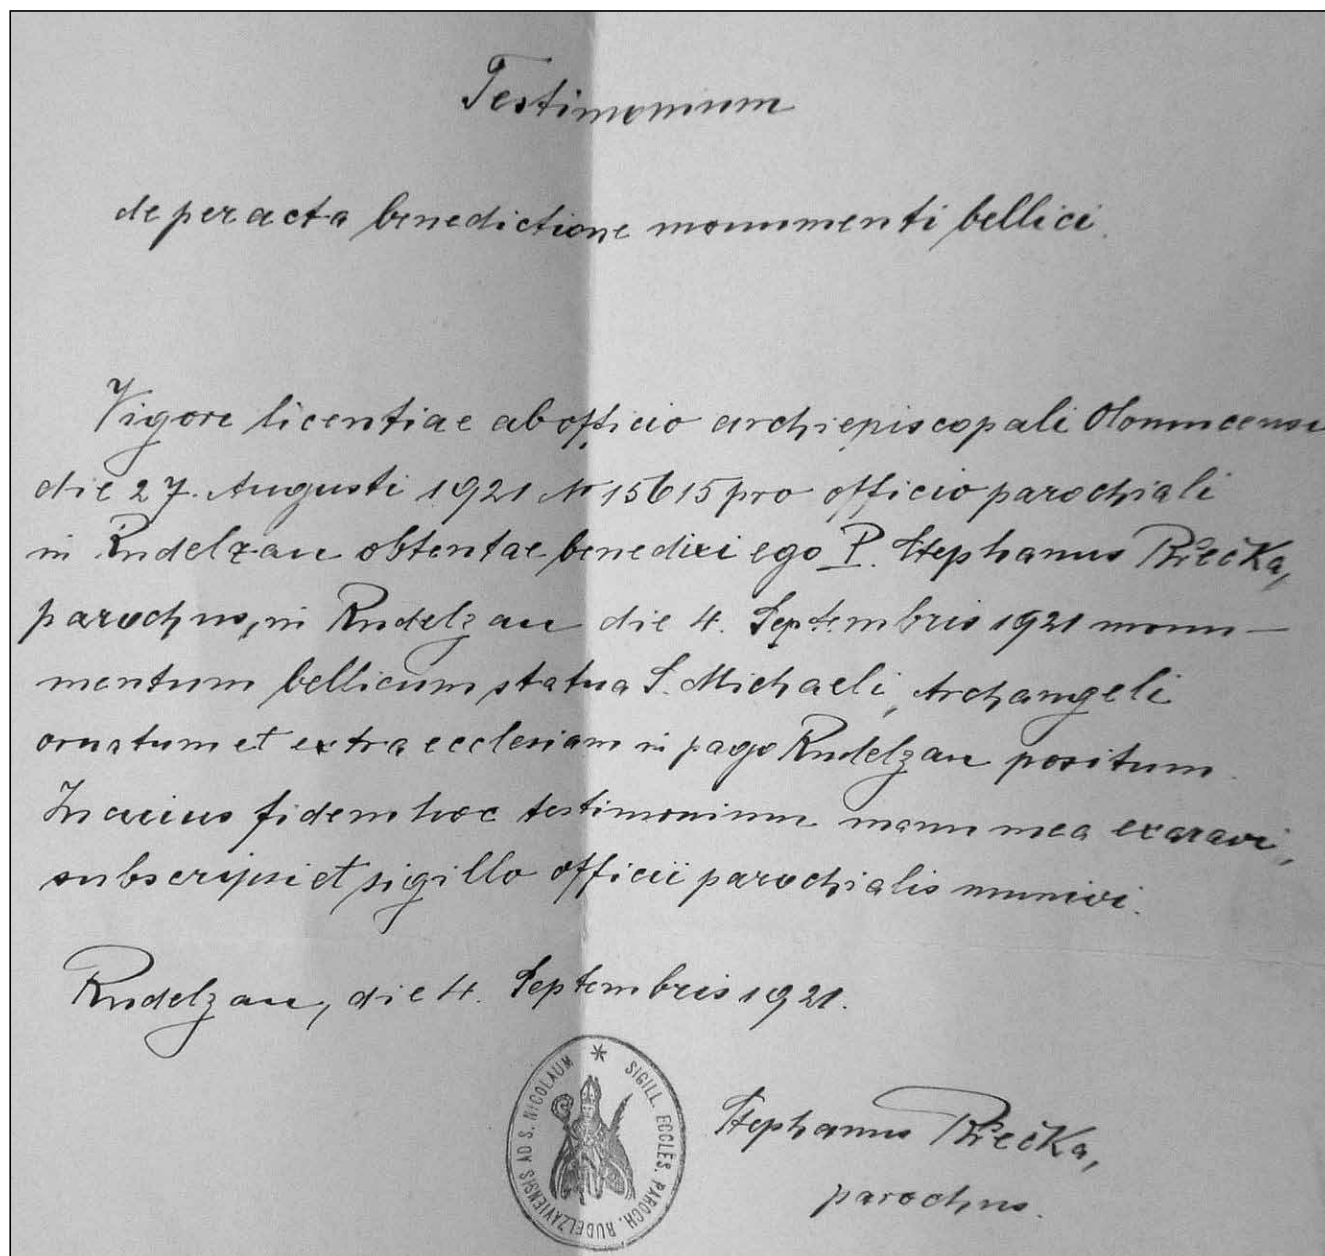 Testimonium
de peracta benedictione monumenti bellici.
Vigore licentiae ab officio archiepiscopali Olomucensi
die 27. Augusti 1921 N 15615 pro officio parochiali
in Rudelzau obtentae benedixi ego P. Stephanus Křečka,
parochus, in Rudelzau die 4. Septembris 1921 monu-
mentum bellicum statua S. Michaeli, Archangeli
ornatum et extra ecclesiam in pago Rudelzau positum.
In cuius fidem hoc testimonium manu mea exaravi,
subscripsi et sigillo officii parochialis munivi.
Rudelzau, die 4. Septembris 1921.
SIGILL. ECCLES. PAROCH. RUDELZAVIENSIS AD S. NICOLAUM
Stephanus Křečka,
parochus.